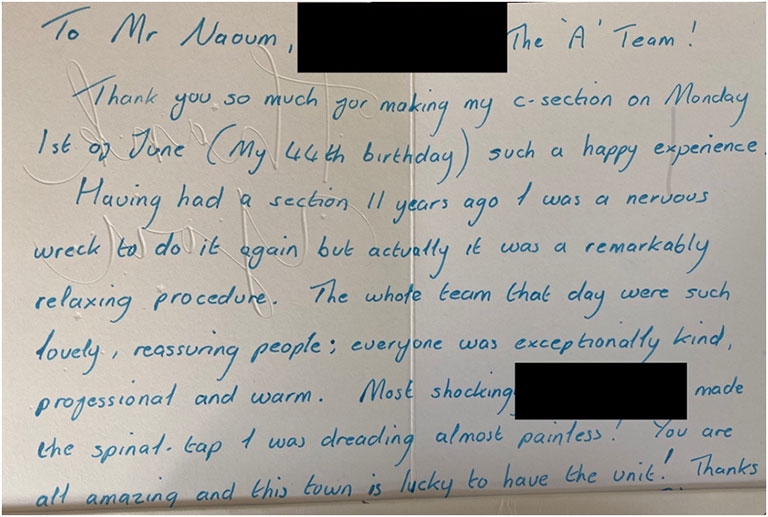 To Mr Naoum, The 'A' Team!
Thank you so much for making my c-section on Monday
1st of June (My 44th birthday) such a happy experience.
Having had a section 11 years ago I was a nervous
wreck to do it again but actually it was a remarkably
relaxing procedure. The whole team that day were such
lovely, reassuring people; everyone was exceptionally kind,
professional and warm. Most shocking made
the spinal-tap I was dreading almost painless! You are
all amazing and this town is lucky to have the unit! Thanks